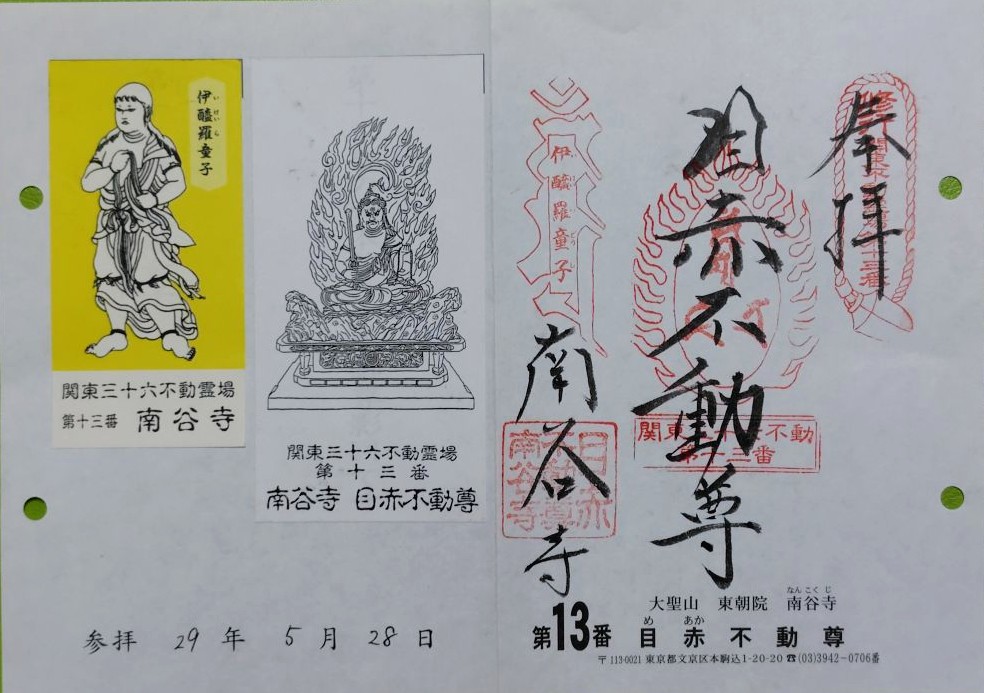 伊醯羅童子
いけいら
関東三十六不動霊場
第十三番 南谷寺
関東三十六不動霊場
第十三番
南谷寺 目赤不動尊
参拝 29年 5月 28日
奉拝
目赤不動尊
伊醯羅童子
南谷寺
関東三十六不動
第十三番
目赤
不動尊
南谷寺
大聖山 東朝院 南谷寺
なんこくじ
第13番 目赤不動尊
め あか
〒113-0021 東京都文京区本駒込1-20-20 ☎(03)3942-0706番